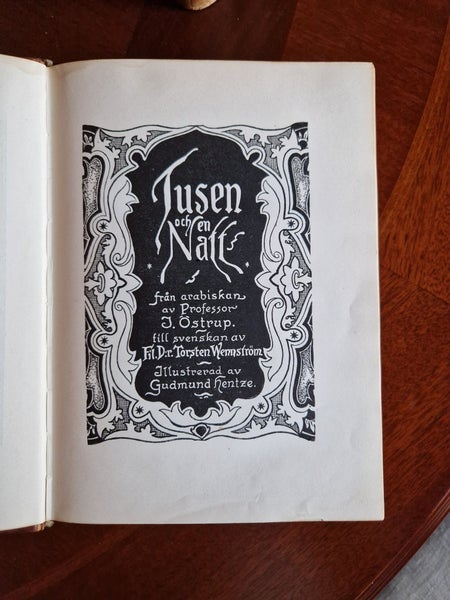 Tusen
och en
Natt
från arabiskan
av Professor
J. Östrup.
till svenskan av
Fil. D:r. Torsten Wennström.
Illustrerad av
Gudmund Hentze.